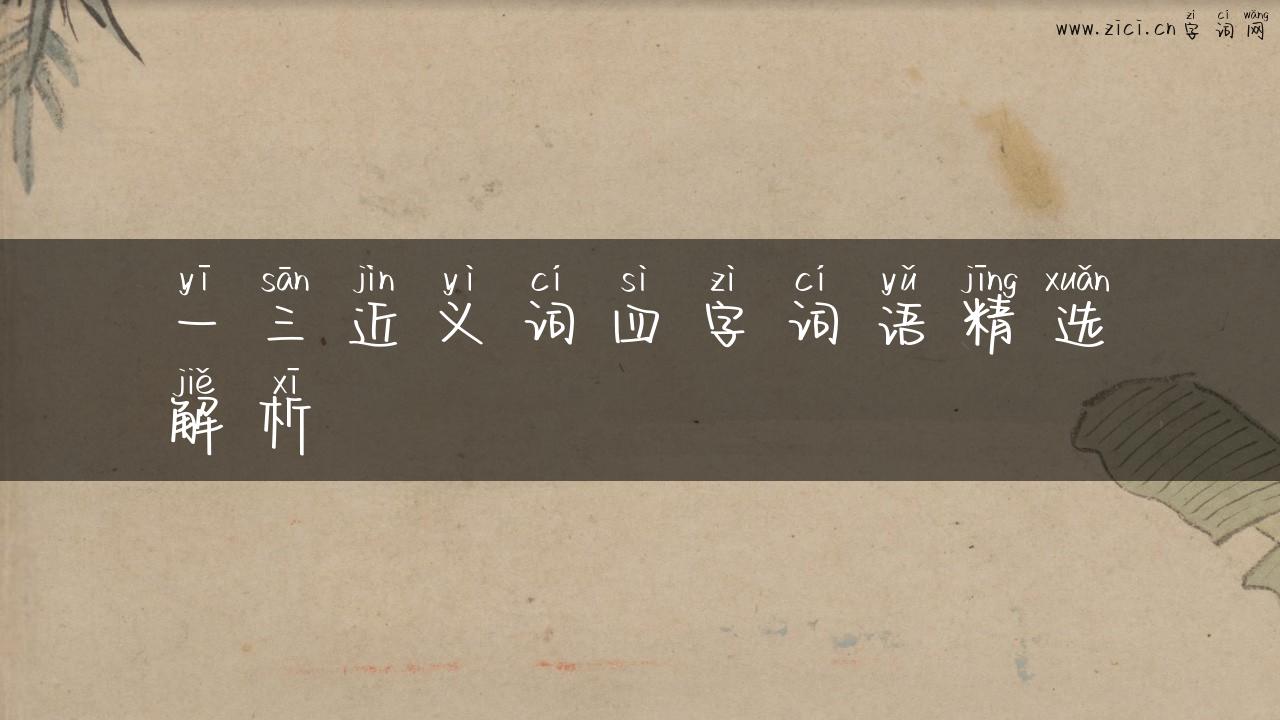 zì cí wǎng
www.zici.cn 字词网
yī sān jìn yì cí sì zì cí yǔ jīng xuǎn
一三近义词四字词语精选
jiě xī
解析